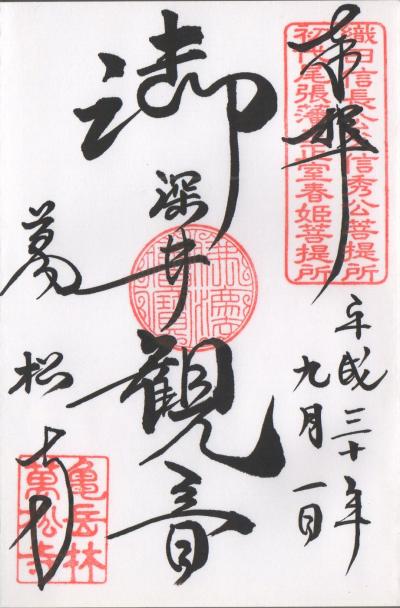 奉拝
織田信長公父信秀公菩提所
初代尾張藩主正室春姫菩提所
平成三十年
九月一日
御深井観音
萬松寺
亀岳林
萬松寺